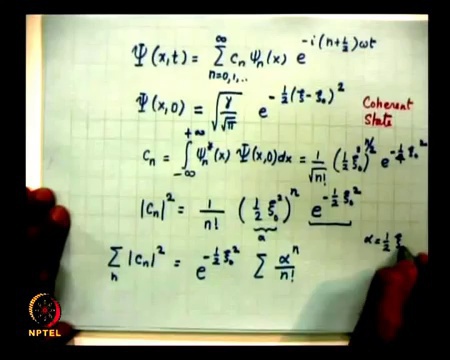 Ψ(x,t) = ∑_{n=0,1,..}^{∞} c_n ψ_n(x) e^{-i(n+½)ωt}
Ψ(x,0) = √(γ/√π) e^{-½(ξ-ξ₀)²}
Coherent State
c_n = ∫_{-∞}^{+∞} ψ_n*(x) Ψ(x,0)dx = 1/√n! (½ ξ₀²)^{n/2} e^{-¼ξ₀²}
|c_n|² = 1/n! (½ ξ₀²)^n e^{-½ξ₀²}
α
α = ½ ξ
∑_n |c_n|² = e^{-½ξ₀²} ∑ αⁿ/n!
NPTEL